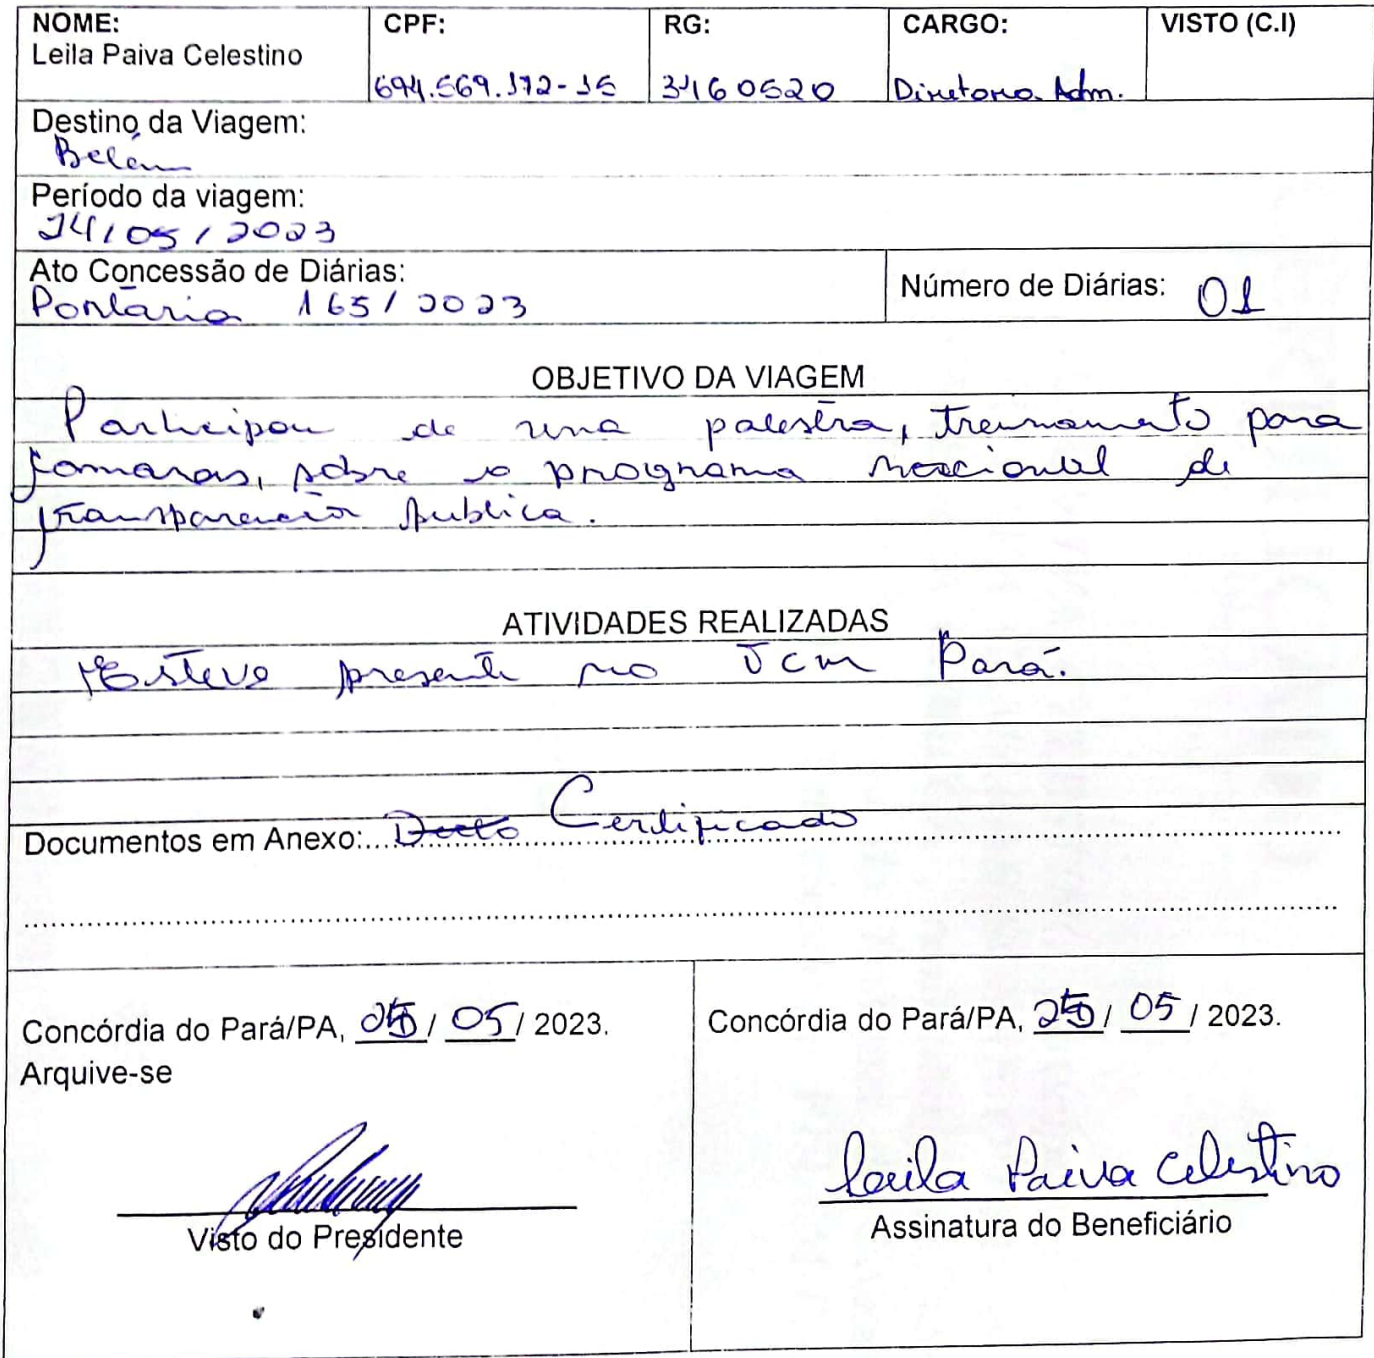 NOME: CPF: RG: CARGO: VISTO (C.I)
Leila Paiva Celestino
694.569.172-15 3460520 Diretora Adm.
Destino da Viagem:
Belém
Período da viagem:
24/05/2023
Ato Concessão de Diárias:
Número de Diárias: 01
Portaria 165/2023
OBJETIVO DA VIAGEM
Participou de uma palestra, treinamento para
Camaras, sobre o programa nacional de
transparencia publica.
ATIVIDADES REALIZADAS
Esteve presente no TCM Pará.
Documentos em Anexo: Certificado
Concórdia do Pará/PA, 25/05/2023.
Arquive-se
Visto do Presidente
Concórdia do Pará/PA, 25/05/2023.
Leila Paiva Celestino
Assinatura do Beneficiário